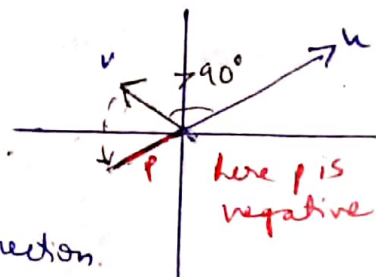 v
u
>90°
p
here p is
negative
rection.